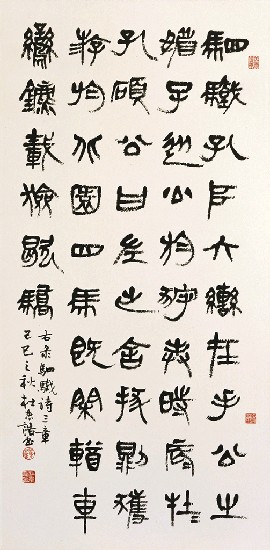 駟驖孔阜六轡在手公之
媚子從公於狩奉時辰牡
孔碩公曰左之舍拔則獲
游於北園四馬既閑輶車
鸞鑣載獫歇驕
右录駟驖詩三章
己巳之秋杜